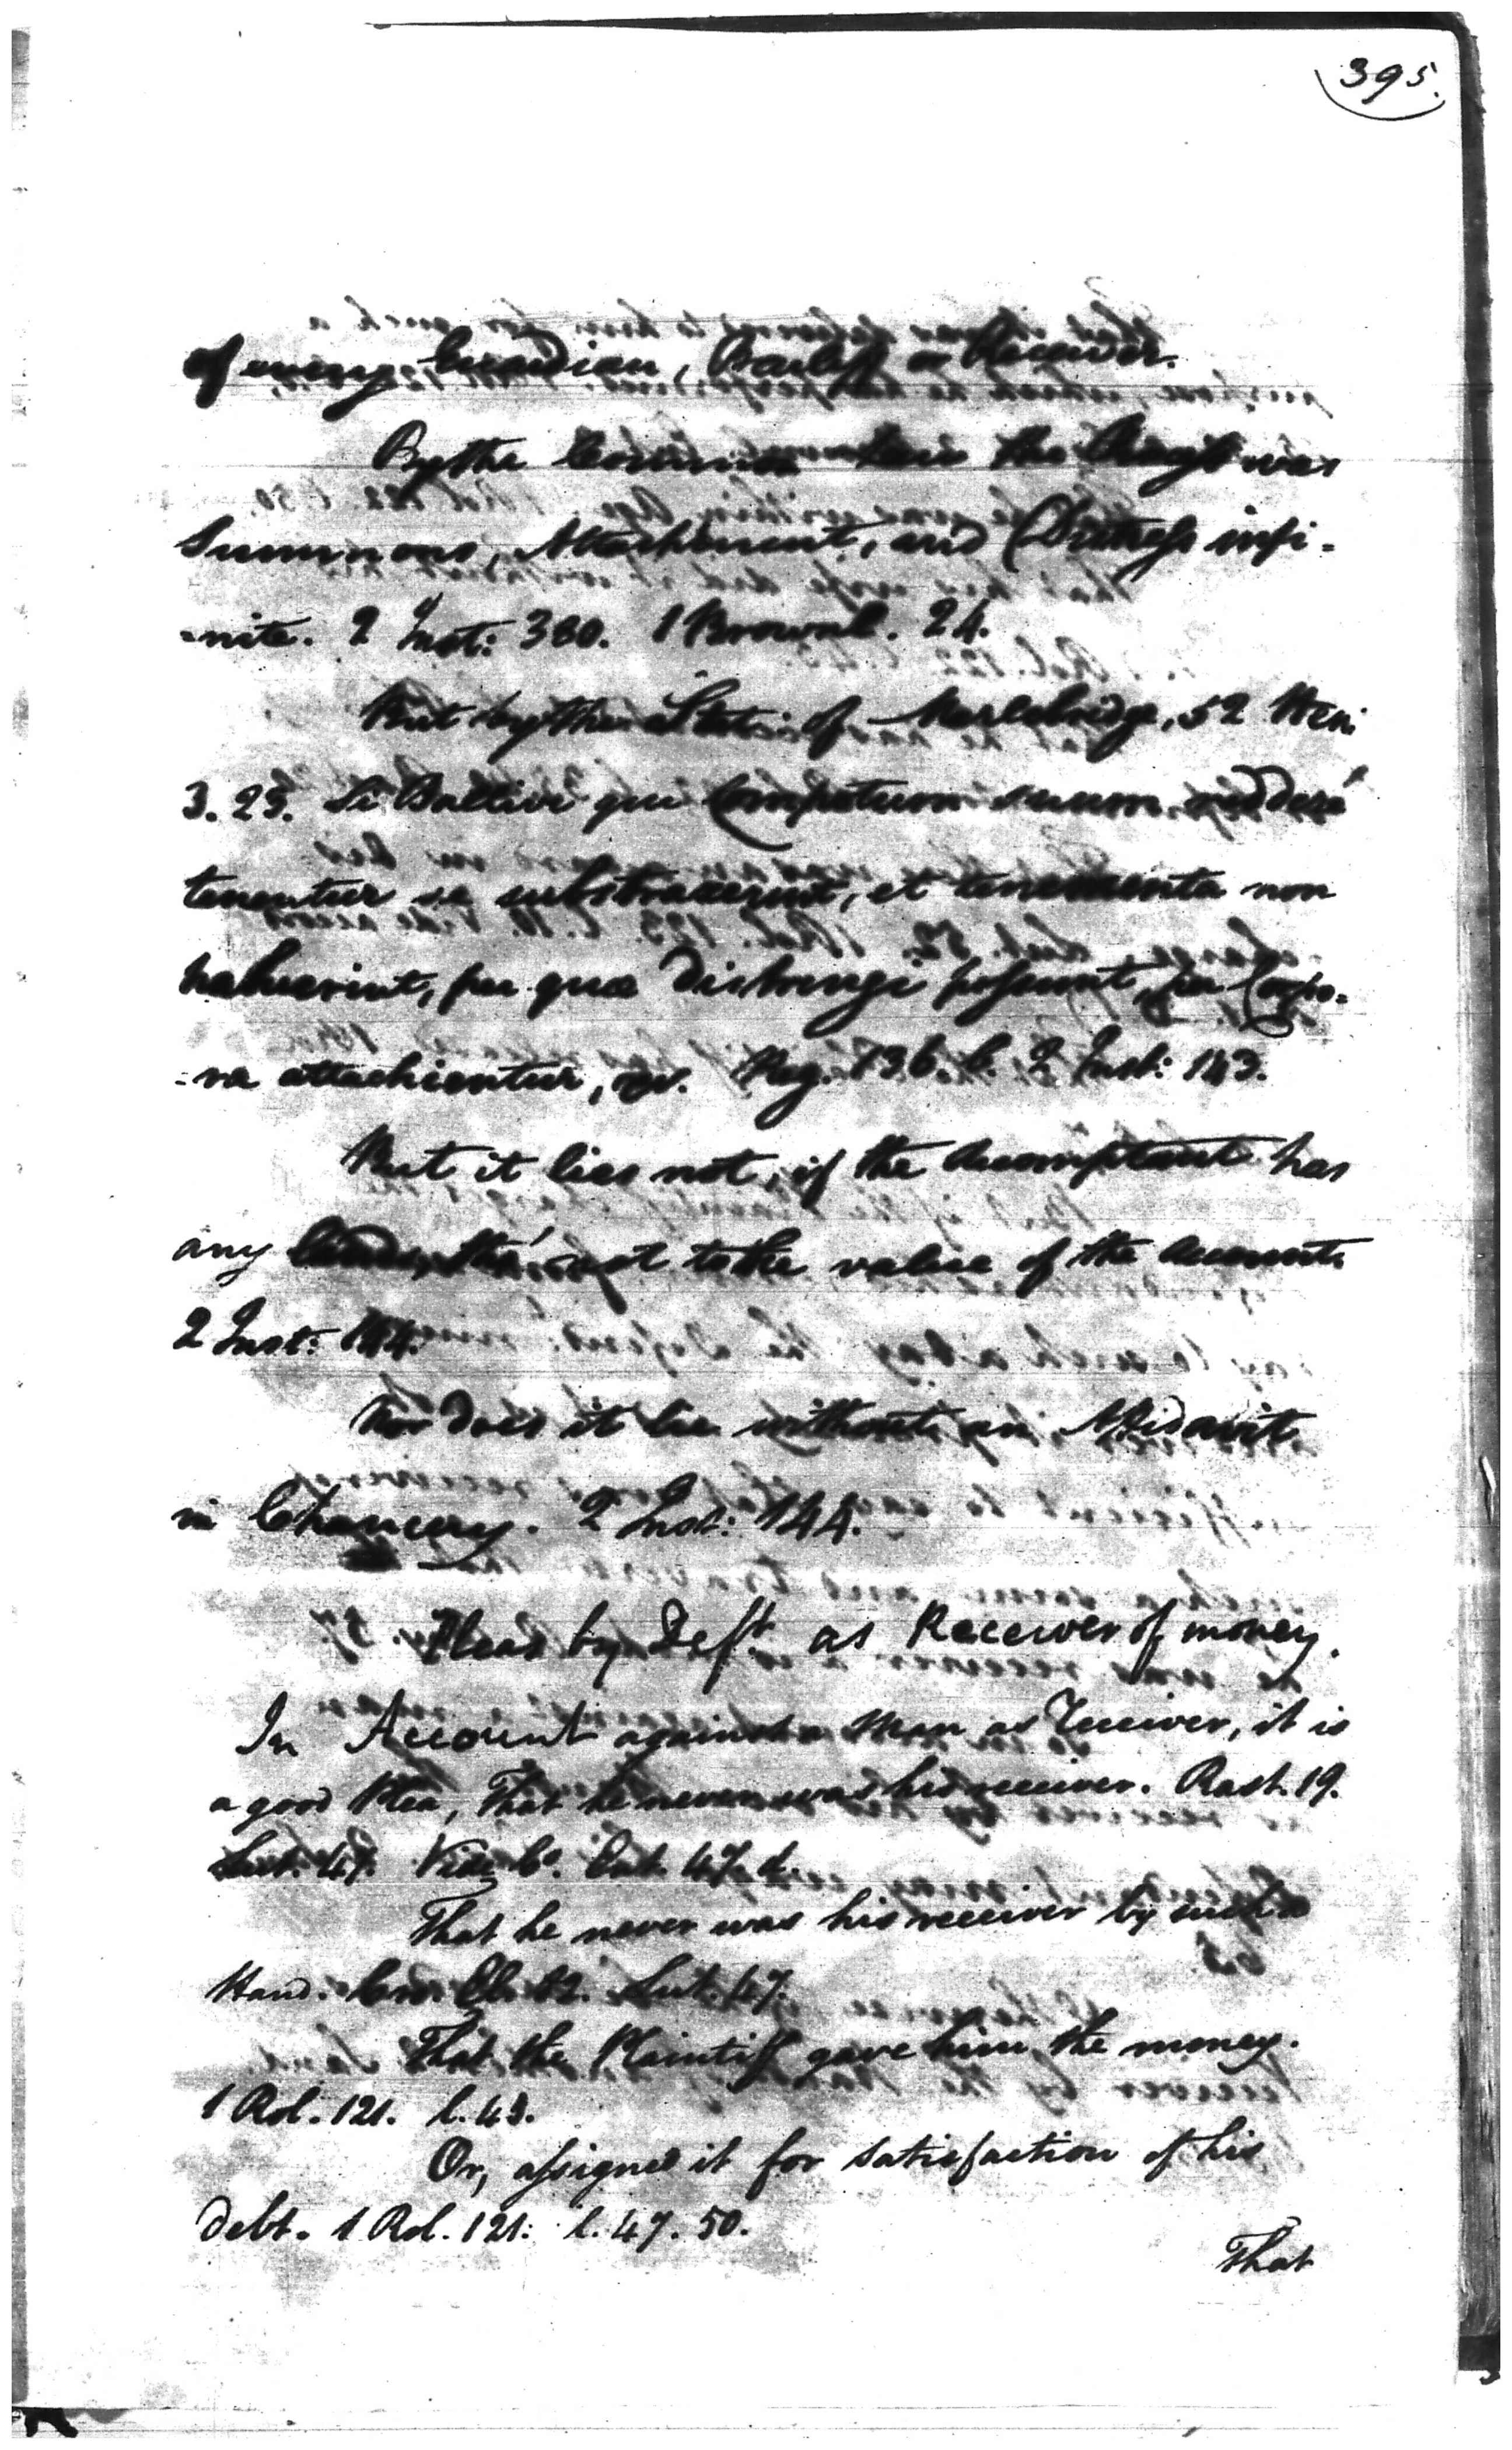 395.
of every Guardian, Bailiff or Receiver.
By the Common Law the was
Summons, Attachment, and Distress infi=
=nite. 2 Inst: 380. 1 Brownl. 24.
But by the Stat: of Marlebridge, 52 Hen:
3. 23. Si Ballivi qui Compotum suum reddere
tenentur se subtraxerint, et tenementa non
habuerint, per quæ distringi possunt, per Corpo=
=ra attachientur, &c. Reg. 136. b. 2 Inst: 143.
But it lies not, if the Accomptant has
any Lands, tho' not to the value of the Accounts
2 Inst: 144.
Nor does it lie without an Affidavit
in Chancery. 2 Inst: 144.
Pleas by Deft. as Receiver of money.
In Account against a Man as Receiver, it is
a good Plea, That he never was his receiver. Rast. 19.
Lut. 47. Vide Co. Ent. 47. d.
That he never was his receiver by such a
Hand. Cro. El. 82. Lut. 47.
That the Plaintiff gave him the money.
1 Rol. 121. l. 43.
Or, assigned it for satisfaction of his
debt. 1 Rol. 121. l. 47. 50.
That